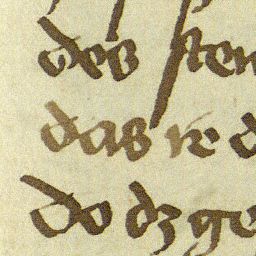 des sten
das re d
do dz ge